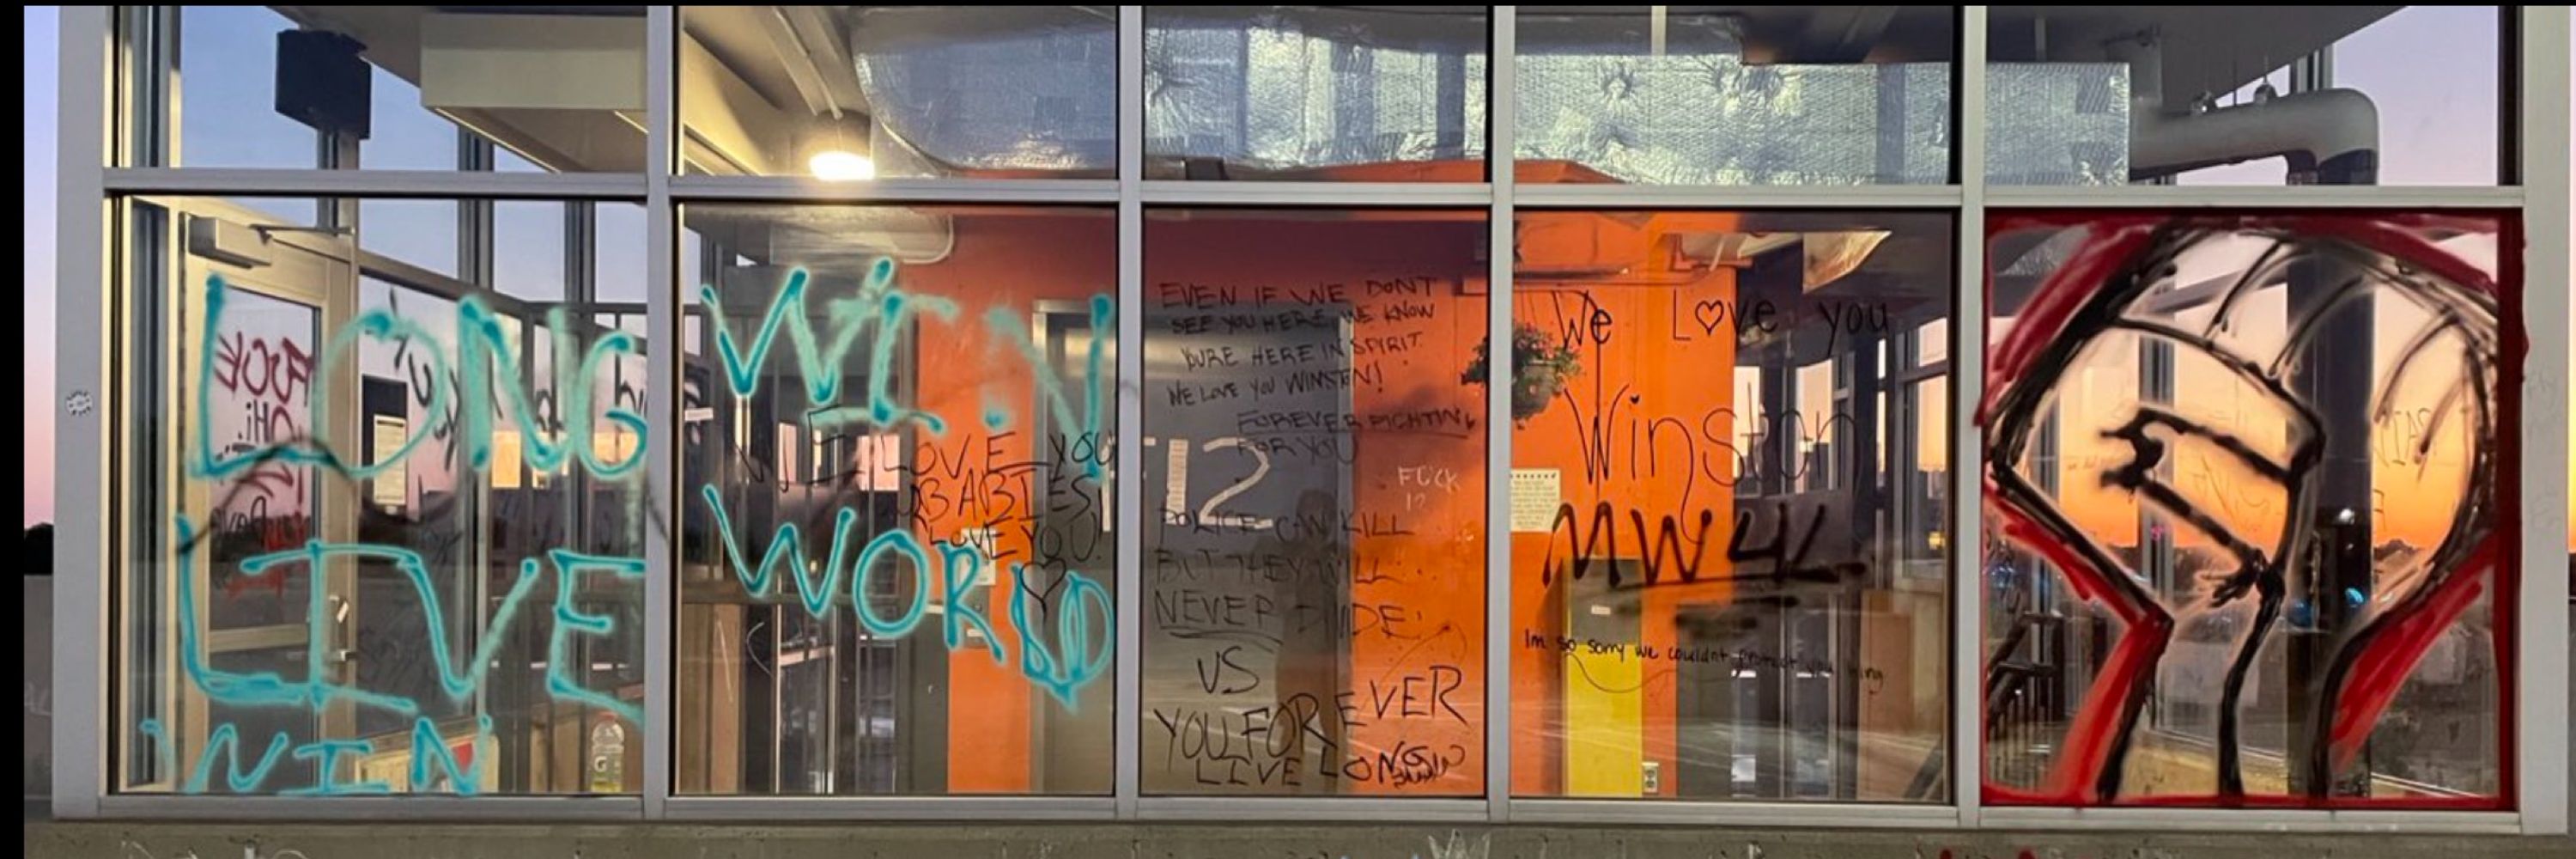 LONG
LIVE
WIN
WIN
WORLD
WE LOVE YOU
BABIES
LOVE YOU!
EVEN IF WE DONT
SEE YOU HERE, WE KNOW
YOURE HERE IN SPIRIT
WE LOVE YOU WINSTON!
FOREVER FIGHTIN
FOR YOU
12
FUCK
12
POLICE CAN KILL
BUT THEY WILL
NEVER
US
YOU FOREVER
LIVE LONG
We Love you
Winston
MW4L
Im so sorry we couldnt protect you king
FUCK